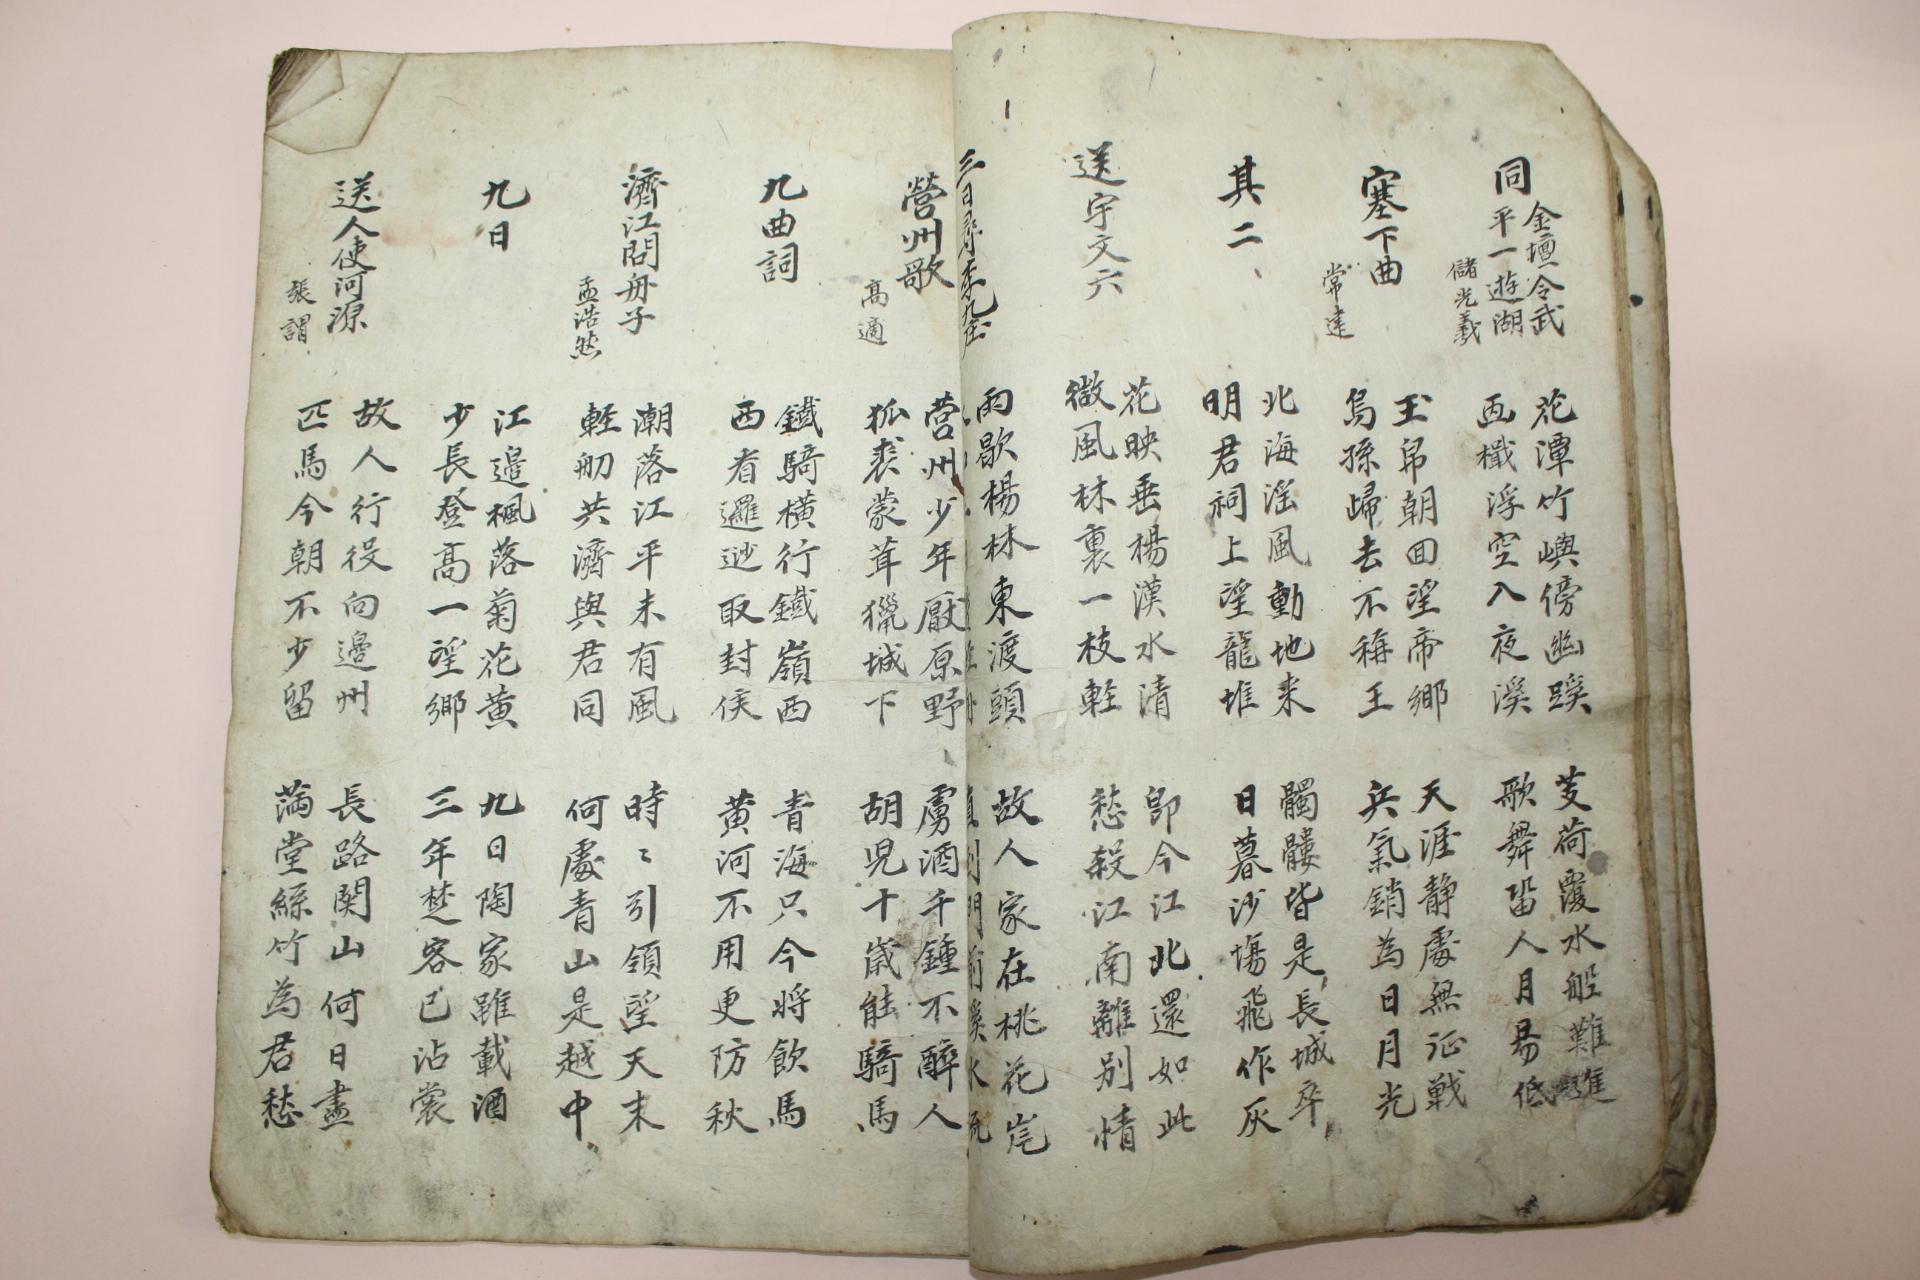 同金壇令武
平一遊湖
儲光羲
花潭竹嶼傍幽蹊
画檝浮空入夜溪
芰荷覆水船難進
歌舞留人月易低
塞下曲
常建
玉帛朝回望帝鄉
烏孫歸去不稱王
天涯静處無征戦
兵氣銷為日月光
其二
北海滛風動地来
明君祠上望龍堆
髑髏皆是長城卒
日暮沙場飛作灰
送宇文六
花映垂楊漢水清
微風林裏一枝輕
即今江北還如此
愁殺江南離別情
三日尋李九庄
雨歇楊林東渡頭
故人家在桃花岸
門前溪水流
營州歌
高適
营州少年厭原野
狐裘蒙茸獵城下
虜酒千鍾不醉人
胡児十歲能騎馬
九曲詞
鐵騎橫行鐵嶺西
西看邏逤取封侯
青海只今将飲馬
黄河不用更防秋
濟江問舟子
孟浩然
潮落江平未有風
輕舠共濟與君同
時〻引領望天末
何處青山是越中
九日
江邉楓落菊花黄
少長登高一望鄉
九日陶家雖載酒
三年楚客已沾裳
送人使河源
張謂
故人行役向邉州
匹馬今朝不少留
長路関山何日盡
滿堂絲竹為君愁